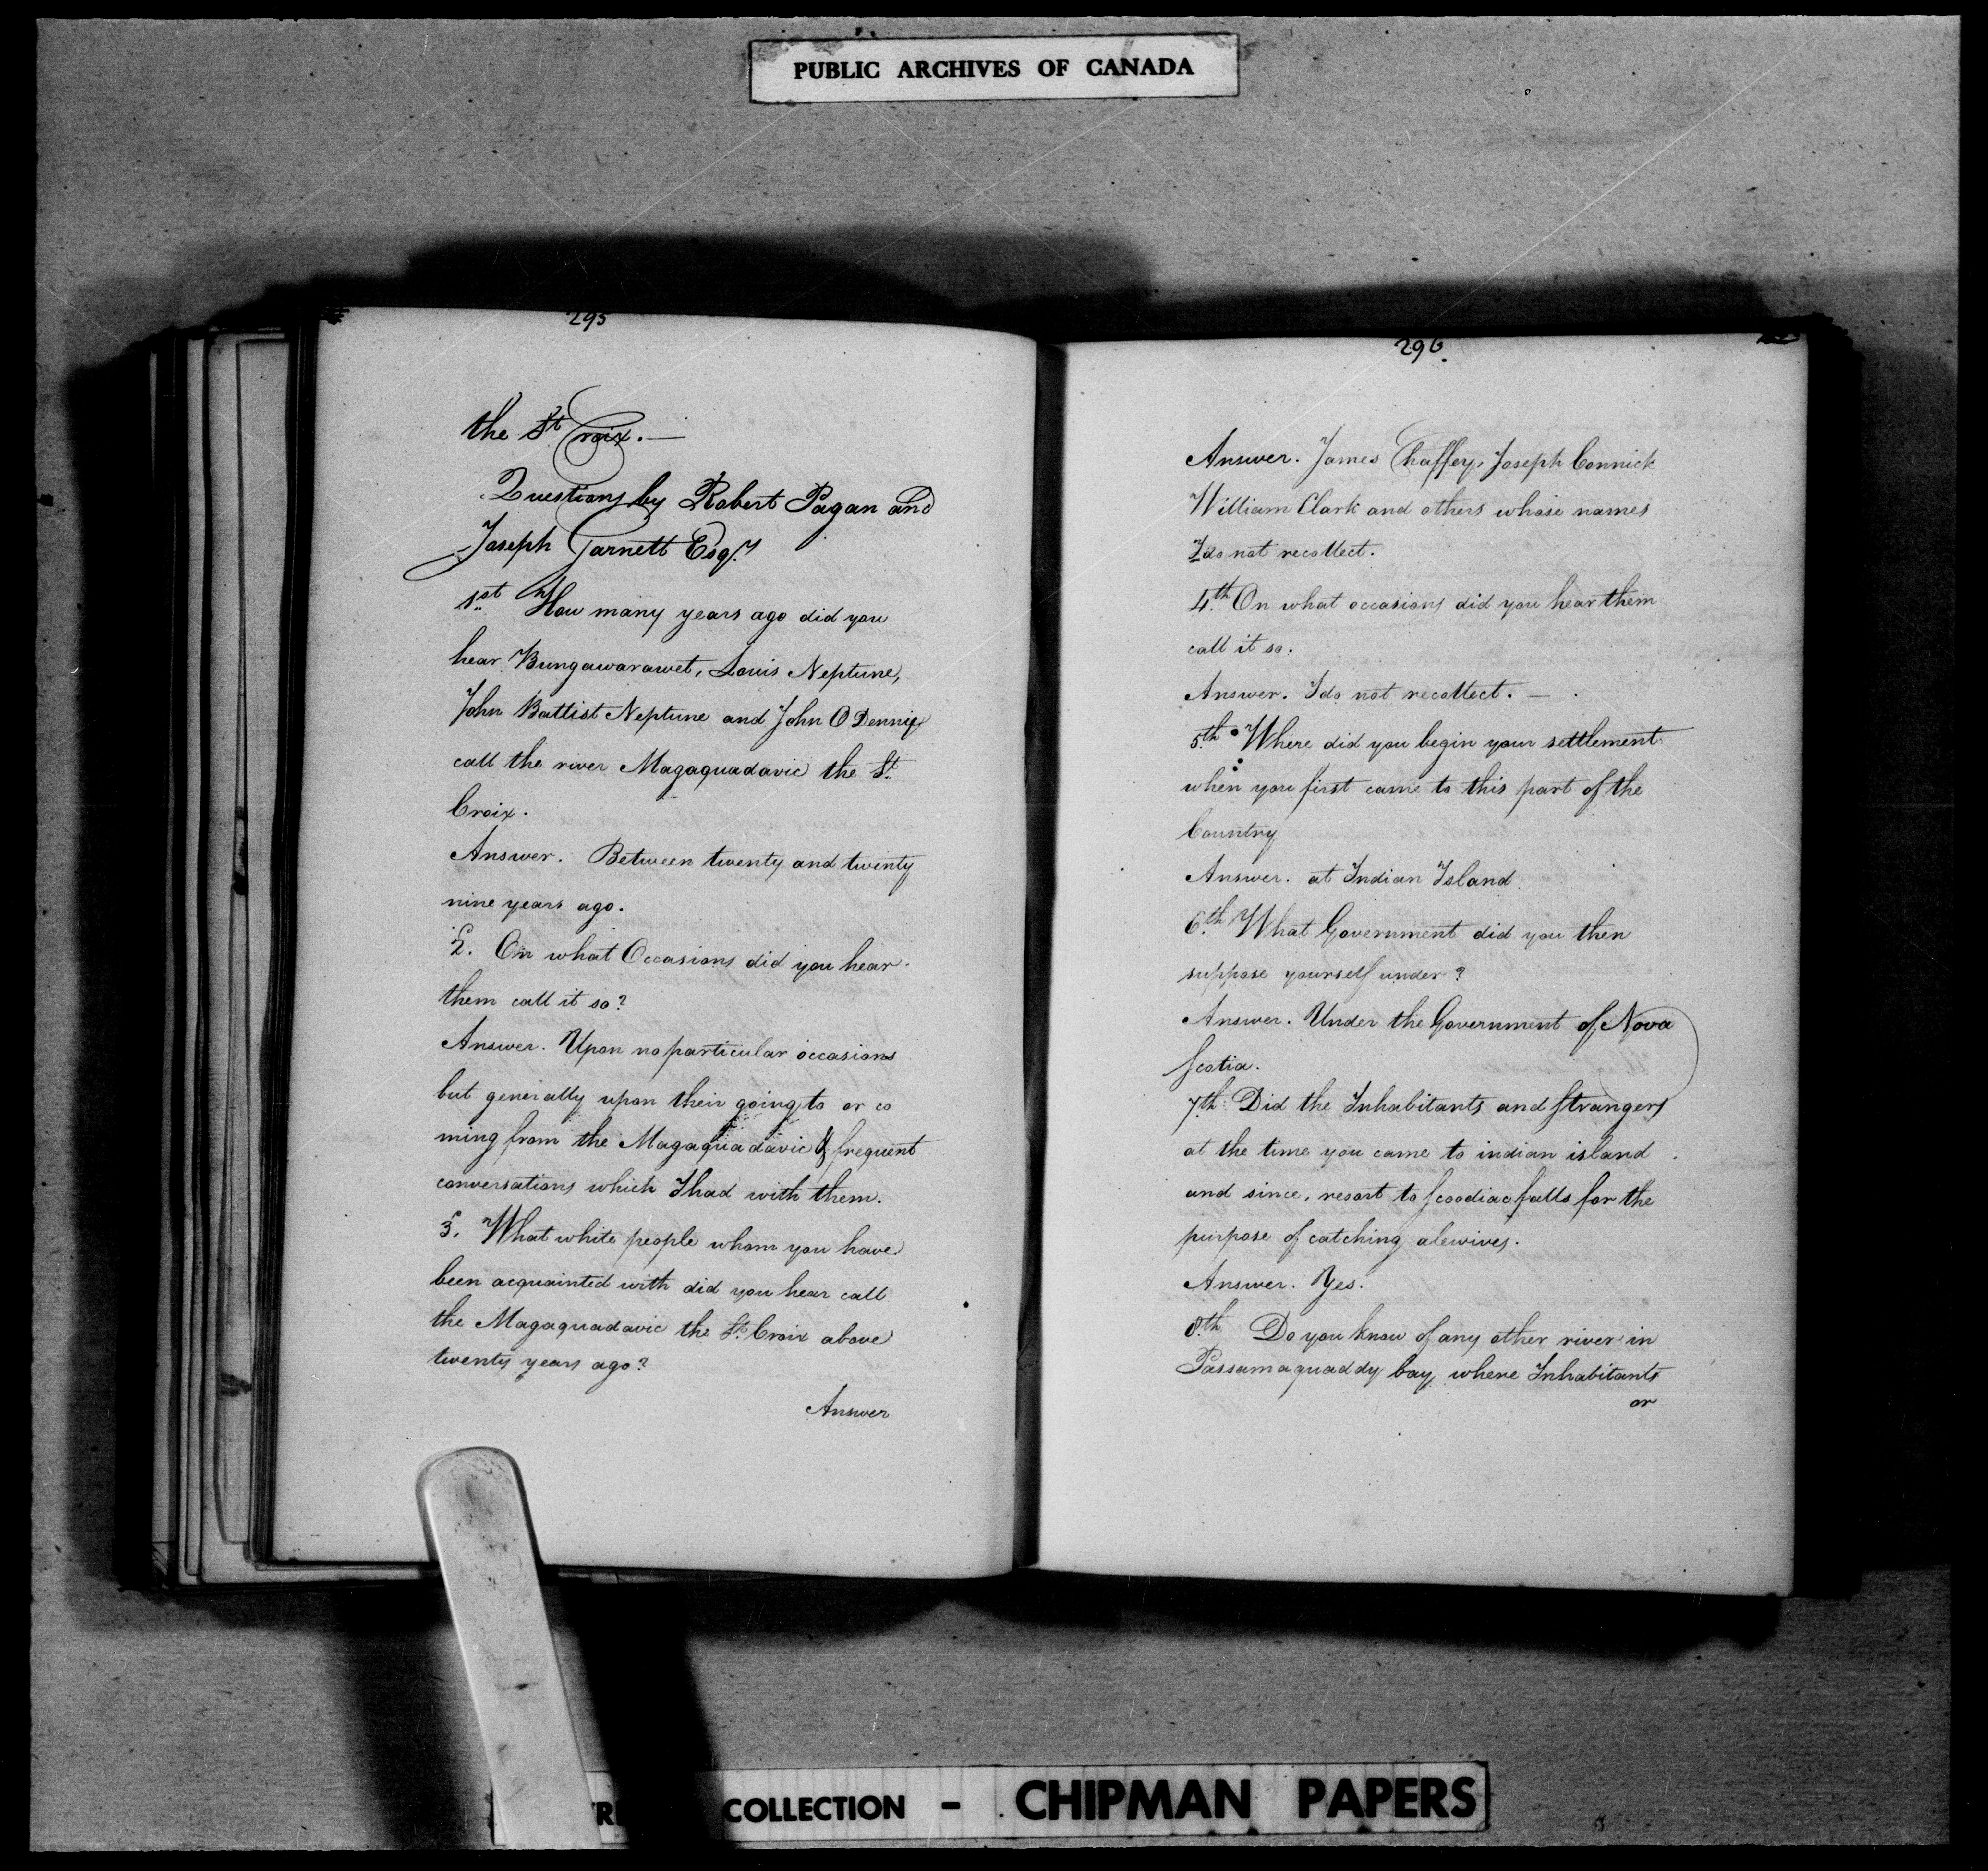 PUBLIC ARCHIVES OF CANADA
295
the St Croix. —
Questions by Robert Pagan and
Joseph Garnett Esqrs
1st How many years ago did you
hear Bungawarawet, Louis Neptune,
John Battist Neptune and John O Dennis
call the river Magaquadavic the St
Croix.
Answer. Between twenty and twenty
nine years ago.
2. On what Occasions did you hear
them call it so?
Answer. Upon no particular occasions
but generally upon their going to or co
ming from the Magaquadavic & frequent
conversations which I had with them.
3. What white people whom you have
been acquainted with did you hear call
the Magaquadavic the St Croix above
twenty years ago?
Answer
296.
Answer. James Chaffey, Joseph Connick
William Clark and others whose names
I do not recollect.
4th On what occasions did you hear them
call it so.
Answer. I do not recollect. —
5th Where did you begin your settlement
when you first came to this part of the
Country
Answer. at Indian Island
6th What Government did you then
suppose yourself under?
Answer. Under the Government of Nova
Scotia.
7th Did the Inhabitants and Strangers
at the time you came to indian island
and since, resort to Scoodiac falls for the
purpose of catching alewives.
Answer. Yes.
8th Do you know of any other river in
Passamaquaddy bay where Inhabitants
or
COLLECTION - CHIPMAN PAPERS